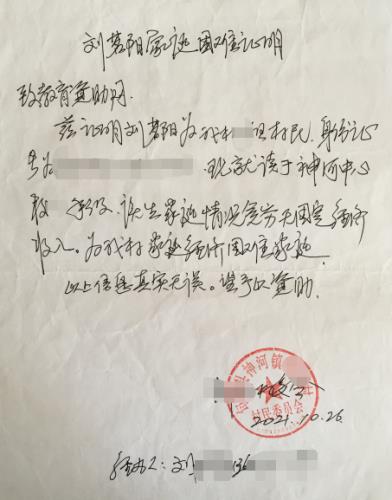 刘茗阳家庭困难证明
致教育资助网.
兹证明刘茗阳为我村 组村民.身份证
号为 .现就读于神河中心
校 年级.该生家庭情况贫穷无固定经济
收入.为我村家庭经济困难家庭.
以上信息真实无误。望予以资助.
县神河镇
村民委员会
村委会
2021.10.26
经办人:刘 136